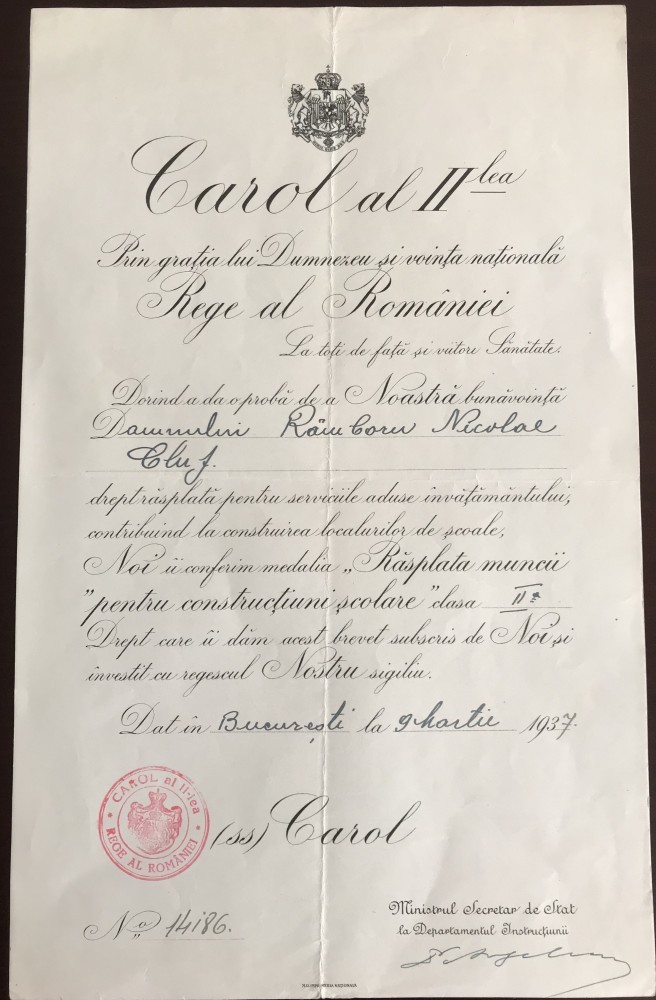 Carol al II lea
Prin grația lui Dumnezeu și voința națională
Rege al României
La toți de față și viitori Sănătate.
Dorind a da o probă de a Noastră bunăvoință
Domnului Râmboru Nicolae
Cluj.
drept răsplată pentru serviciile aduse învățământului,
contribuind la construirea localurilor de școale,
Noi îi conferim medalia „Răsplata muncii
"pentru construcțiuni școlare" clasa II a
Drept care îi dăm acest brevet subscris de Noi și
investit cu regescul Nostru sigiliu.
Dat în București la 9 Martie 1937.
CAROL al II-lea
REGE AL ROMÂNIEI
(ss) Carol
No 14186.
Ministrul Secretar de Stat
la Departamentul Instrucțiunii